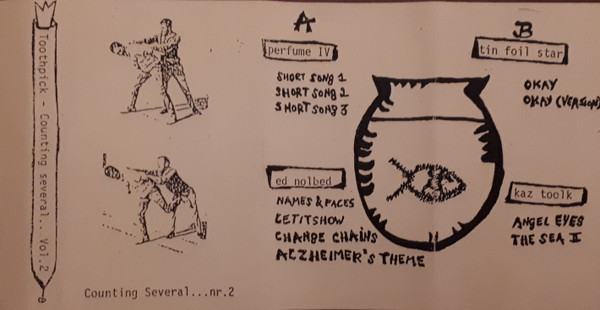 Toothpick - Counting several.. Vol.2
A
perfume IV
SHORT SONG 1
SHORT SONG 2
SHORT SONG 3
ed nolbed
NAMES & FACES
LETITSHOW
CHANGE CHAINS
ALZHEIMER'S THEME
B
tin foil star
OKAY
OKAY (VERSION)
kaz toolk
ANGEL EYES
THE SEA II
Counting Several...nr.2